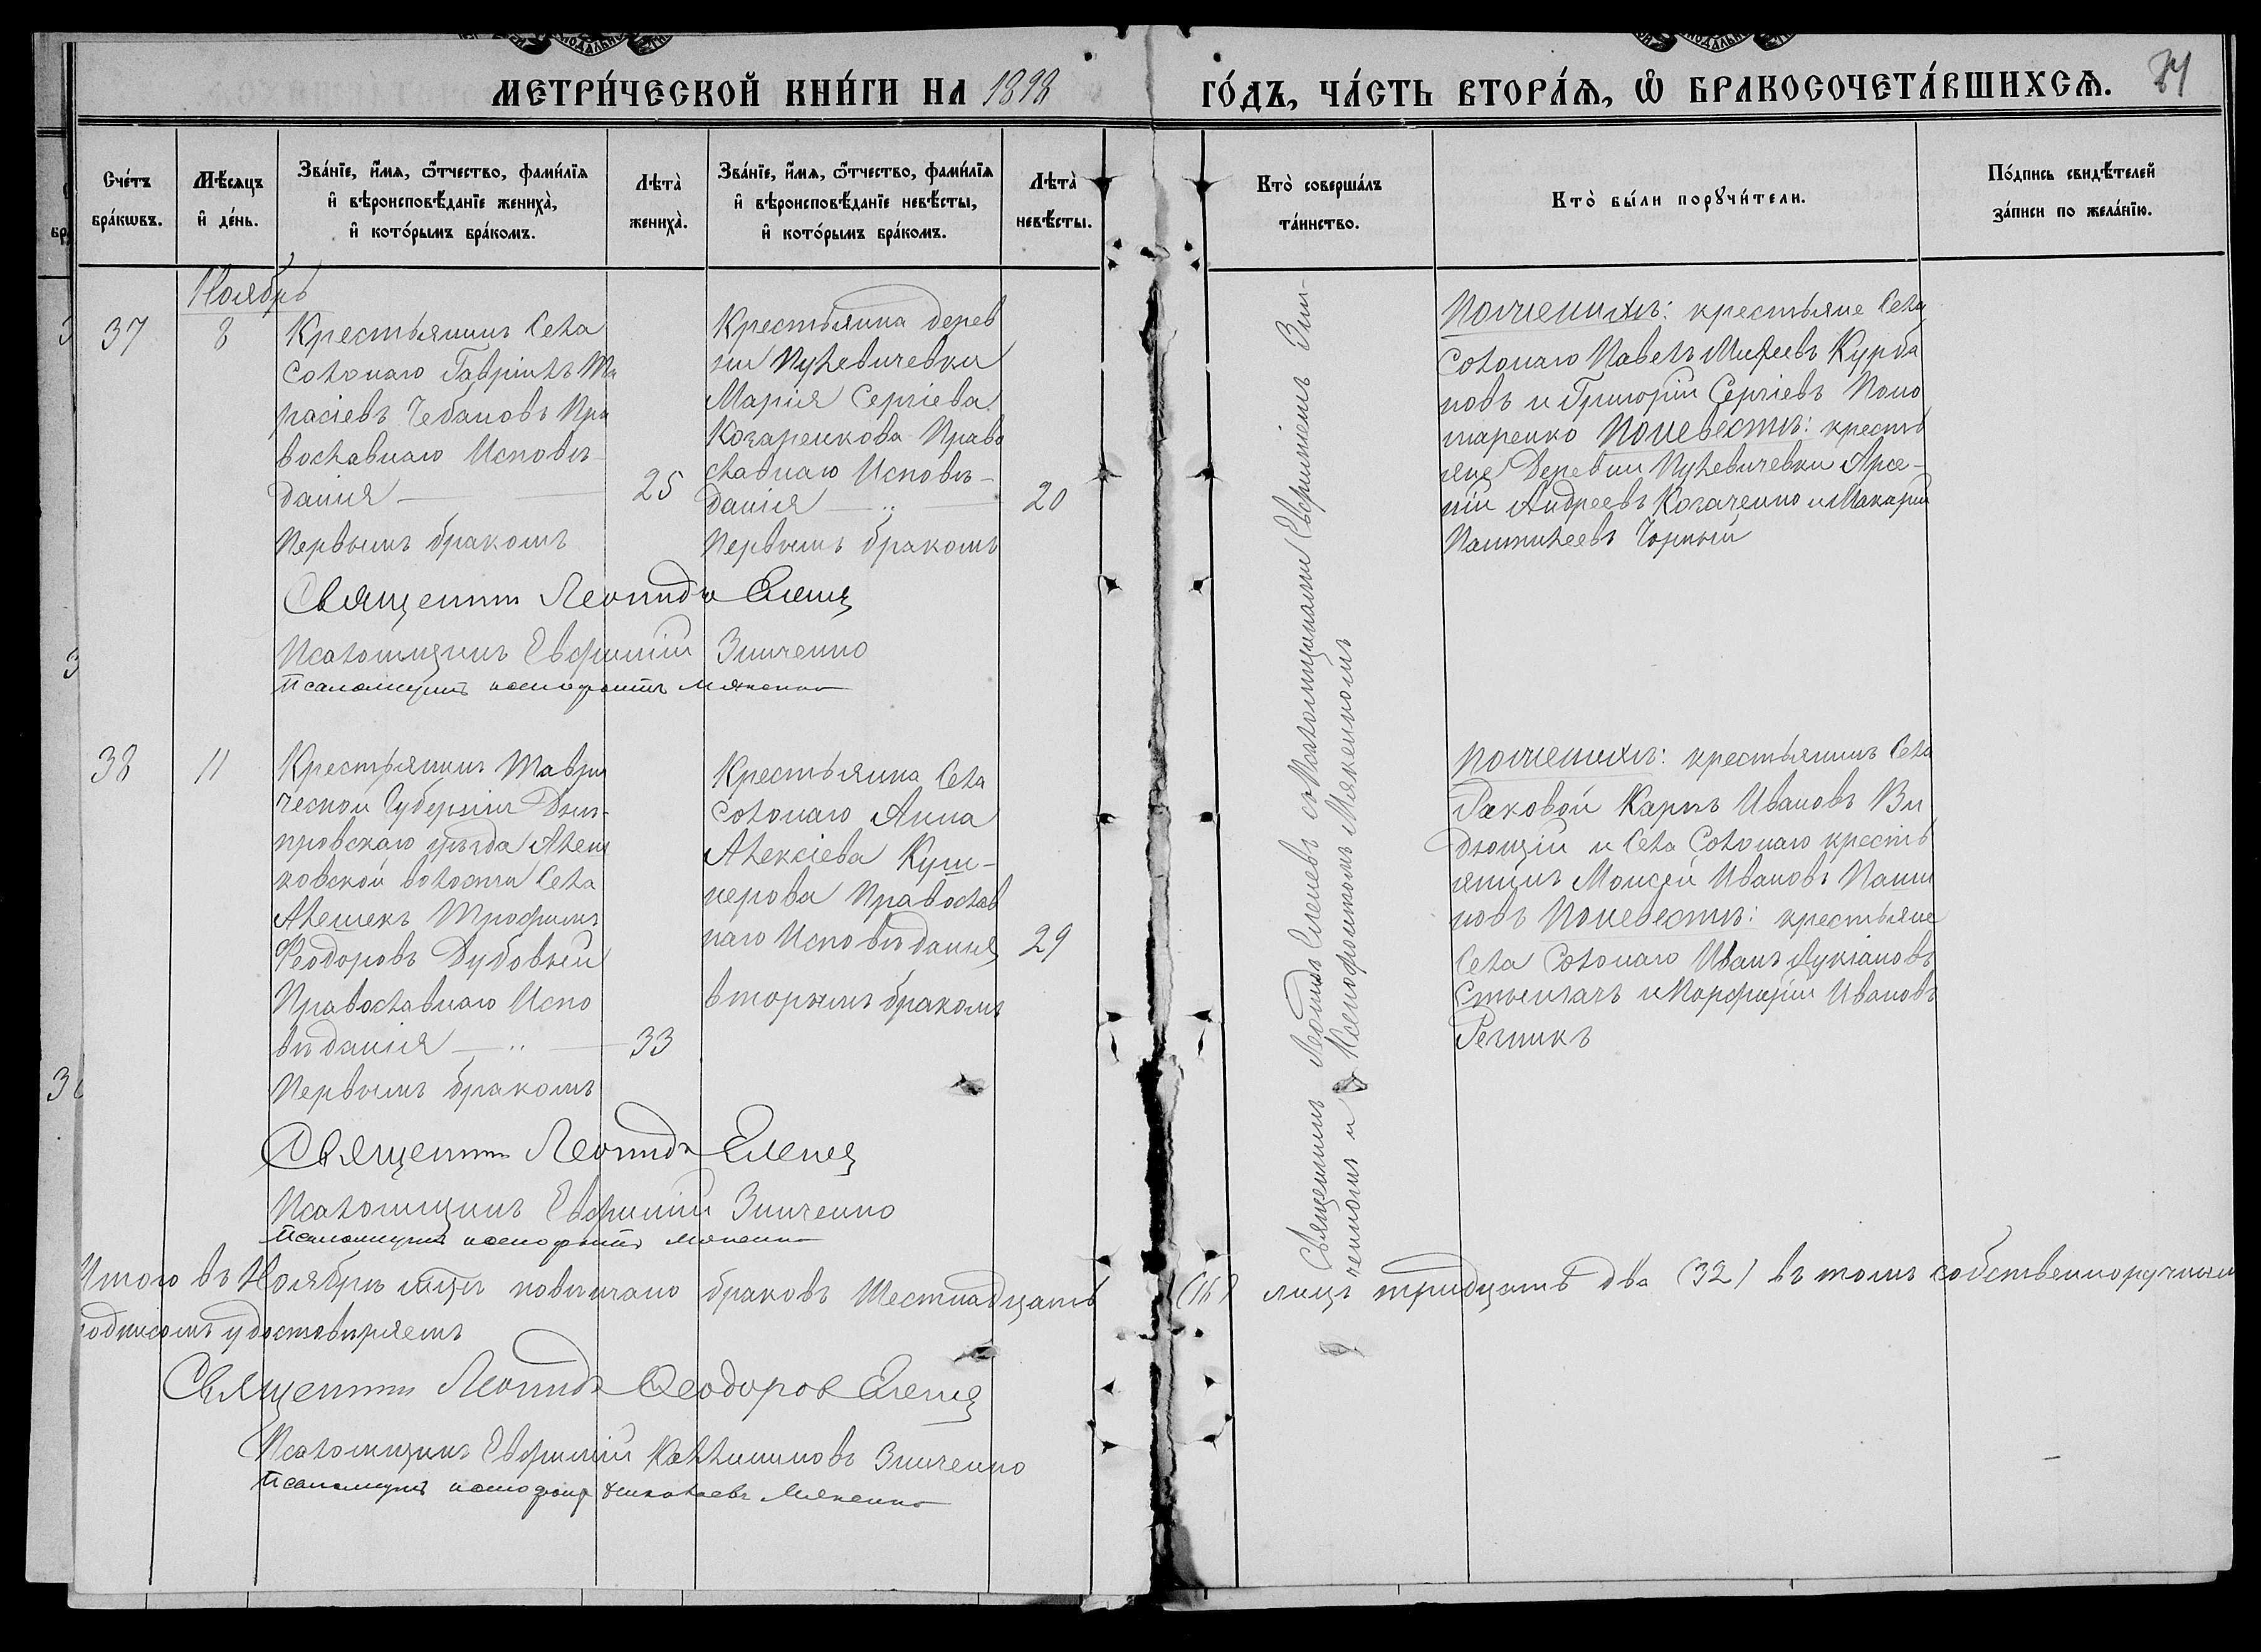 МЕТРИ́ЧЕСКОЙ КНИ́ГИ НА 1898
ГО́ДЪ, ЧА́СТЬ ВТОРА́Ѧ, Ѡ҆ БРАКОСОЧЕТА́ВШИХСѦ.
Сче́тъ бра́кѡвъ.
Мѣ́сяцъ и҆ де́нь.
Зва́нїе, и҆́мя, ѻ҆́тчество, фами́лїя
и҆ вѣроисповѣ́данїе жениха̀,
и҆ кото́рымъ бра́комъ.
Лѣта̀ жениха̀.
Зва́нїе, и҆́мя, ѻ҆́тчество, фами́лїя
и҆ вѣроисповѣ́данїе невѣ́сты,
и҆ кото́рымъ бра́комъ.
Лѣта̀ невѣ́сты.
Кто̀ соверша́лъ
та́инство.
Кто̀ бы́ли порꙋчи́тели.
По́дпись свидѣ́телей
за́писи по жела́нїю.
Ноябрь
37
8
Крестьянинъ Села
Солонаго Гавріилъ Та
расіевъ Чебановъ Пра
вославнаго Исповѣ-
данія
25
Первымъ бракомъ
Крестьянка дерев
ни Пулевичевки
Марія Сергіева
Козаренкова Право
славнаго Исповѣ-
данія
20
Первымъ бракомъ
Поженихѣ: крестьяне Села
Солонаго Павелъ Михеевъ Курба
новъ и Григорій Сергіевъ Поно
маренко Поневестѣ: кресть
яне Деревни Пулевичевки Арсе-
ній Андреевъ Козаченко и Макарій
Пантилеевъ Чорный
Священникъ Леонидъ Еленев
Псаломщикъ Евфимій Зинченко
Псаломщикъ Ксенофонтъ Мякенко
38
11
Крестьянинъ Таври
ческой Губерніи Днѣ-
провскаго уѣзда Алеш
ковской волости Села
Алешекъ Трофимъ
Феодоровъ Дубовый
Православнаго Испо
вѣданія
33
Первымъ бракомъ
Крестьянка Села
Солонаго Анна
Алексіева Куш-
нерова Православ
наго Исповѣданія
29
вторымъ бракомъ
Поженихѣ: крестьянинъ Села
Раковой Карпъ Ивановъ Ви
дющій и Села Солонаго кресть
янинъ Моисей Ивановъ Паши
новъ Поневестѣ: крестьяне
Села Солонаго Иванъ Лукіановъ
и Порфирій Ивановъ
Резникъ
Священникъ Леонидъ Еленев
Псаломщикъ Евфимій Зинченко
Псаломщикъ Ксенофонтъ Мякенко
Священникъ Леонидъ Еленевъ съ Псаломщиками Евфиміемъ Зин-
ченкомъ и Ксенофонтомъ Мякенкомъ
Итого въ Ноябрѣ м-цѣ повѣнчано браковъ Шестнадцать (16) лицъ тридцать два (32) въ томъ собственноручнымъ
подписомъ удостовѣряемъ
Священникъ Леонидъ Феодоров Еленев
Псаломщикъ Евфимій Каллиниковъ Зинченко
Псаломщикъ Ксенофонтъ Николаевъ Мякенко